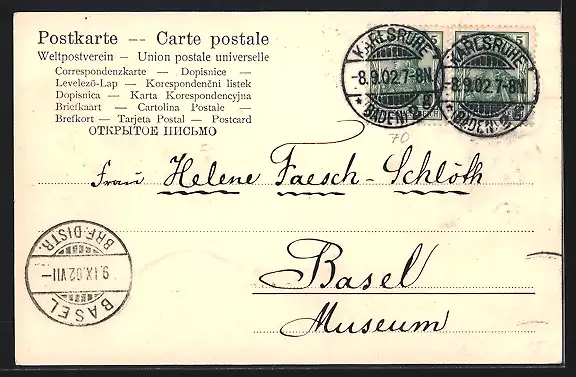 Postkarte -- Carte postale
Weltpostverein – Union postale universelle
Correspondenzkarte — Dopisnice —
Levelező-Lap — Korespondenční listek
Dopisnica — Karta Korespondencyjna
Briefkaart — Cartolina Postale —
Brefkort — Tarjeta Postal — Postcard
ОТКРЫТОЕ ПИСЬМО
KARLSRUHE
-8.9.02.7-8N
* (BADEN) 2
5
KARLSRUHE
-8.9.02.7-8N
* (BADEN) 2
5
70
Frau Helene Faesch-Schlöth
Basel
Museum
BRF.DISTR.
9.IX.02.VII-
BASEL